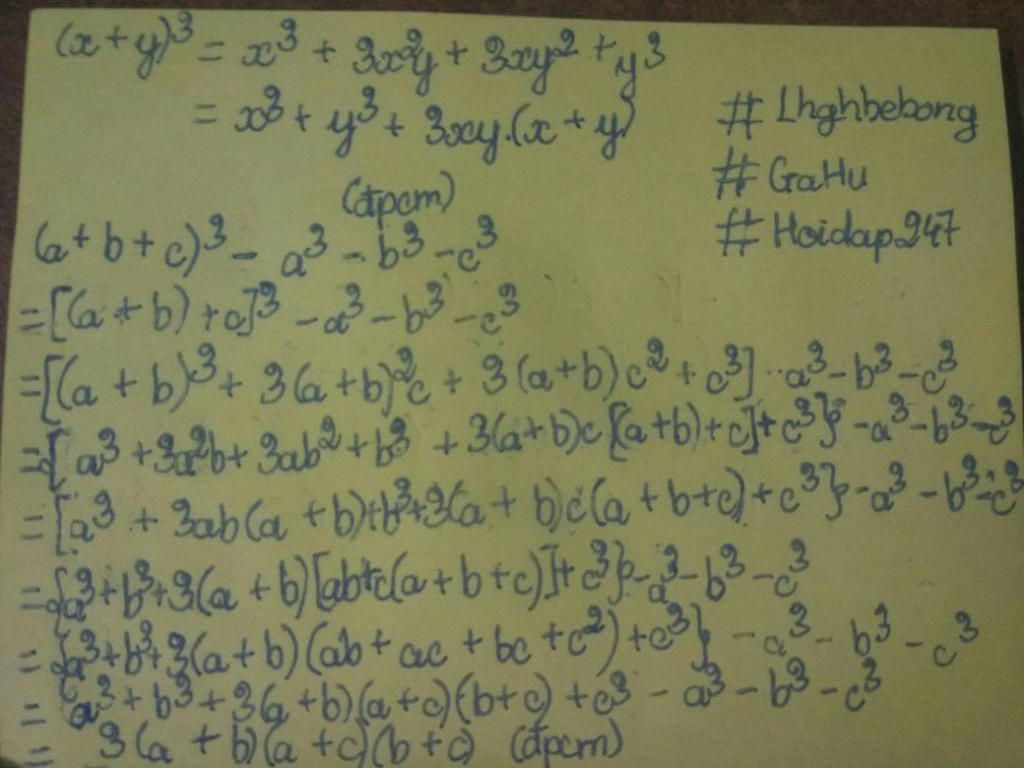 (x+y)³ = x³ + 3x²y + 3xy² + y³
= x³ + y³ + 3xy.(x + y)
# Lhghbebong
# GaHu
(đpcm)
# Hoidap247
(a + b + c)³ - a³ - b³ - c³
= [(a + b) + c]³ - a³ - b³ - c³
= [(a + b)³ + 3(a + b)²c + 3(a+b)c² + c³] - a³ - b³ - c³
= { a³ + 3a²b + 3ab² + b³ + 3(a+b)c [(a+b)+c] + c³} - a³ - b³ - c³
= [a³ + 3ab(a + b)+b³+3(a + b)c(a + b+c) + c³} - a³ - b³ - c³
= {a³+b³+3(a + b)[ab+c(a + b + c)]+ c³} - a³ - b³ - c³
= {a³+b³+3(a+b)(ab + ac + bc + c²) + c³} - a³ - b³ - c³
= a³ + b³ + 3(a + b)(a+c)(b+c) + c³ - a³ - b³ - c³
= 3(a + b)(a + c)(b + c) (đpcm)